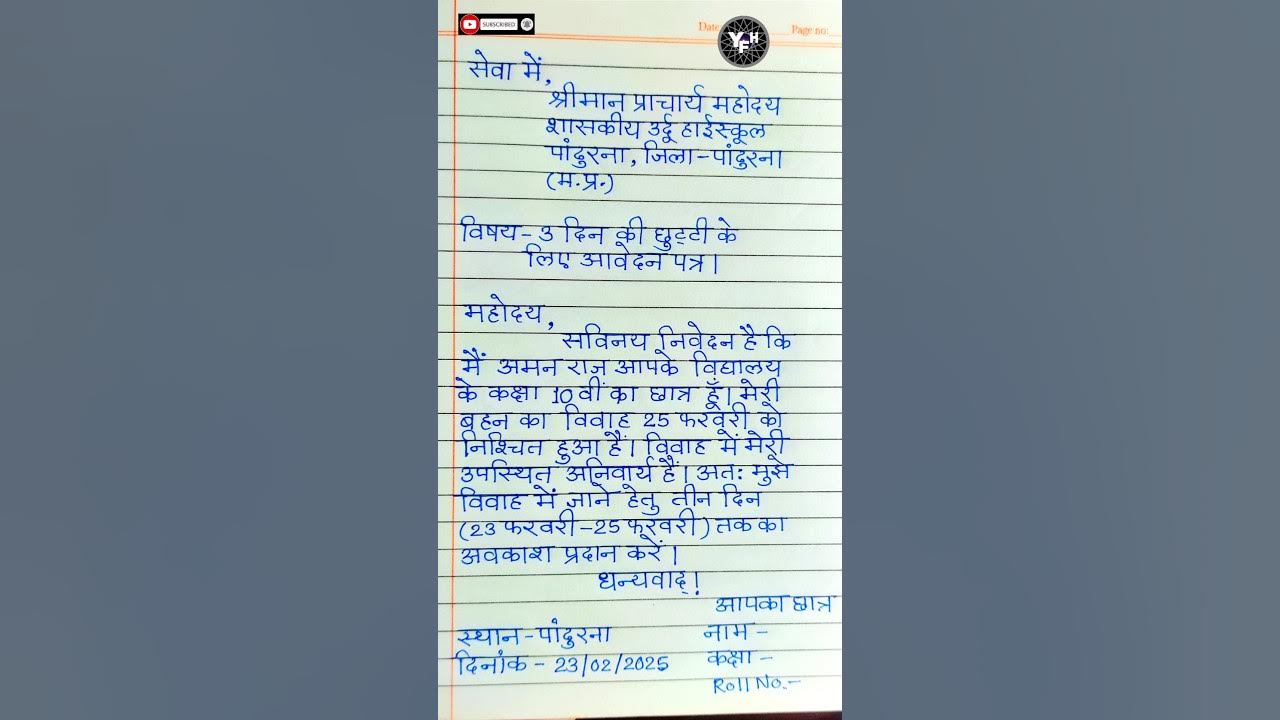 SUBSCRIBED
Date
Page no:
YFH
सेवा में,
श्रीमान प्राचार्य महोदय
शासकीय उर्दू हाईस्कूल
पांदुरना, जिला-पांदुरना
(म.प्र.)
विषय- 3 दिन की छुट्टी के
लिए आवेदन पत्र।
महोदय,
सविनय निवेदन है कि
मैं अमन राज आपके विद्यालय
के कक्षा 10 वीं का छात्र हूँ। मेरी
बहन का विवाह 25 फरवरी को
निश्चित हुआ हैं। विवाह में मेरी
उपस्थित अनिवार्य हैं। अतः मुझे
विवाह में जाने हेतु तीन दिन
(23 फरवरी-25 फरवरी) तक का
अवकाश प्रदान करें।
धन्यवाद्!
आपका छात्र
स्थान-पांदुरना
नाम -
दिनांक - 23/02/2025
कक्षा -
Roll No.-